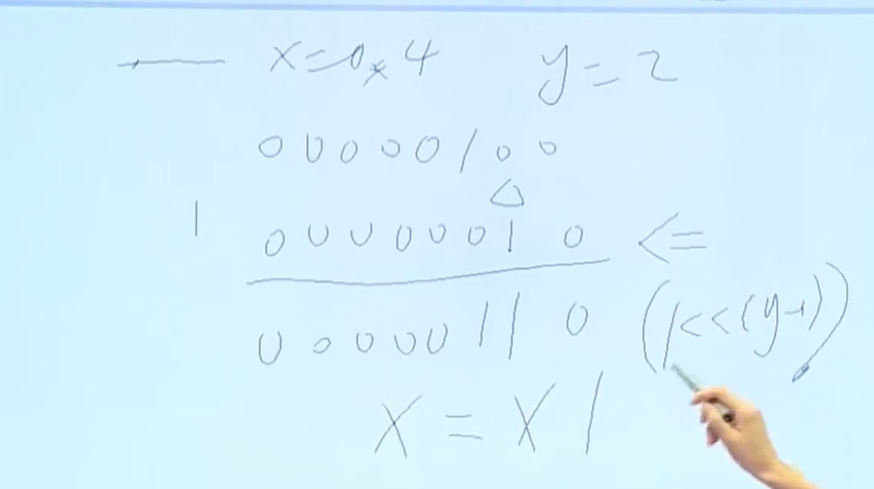 x=0x4 y=2
00000100
△
| 00000010 <=
00000110 (1<<(y-1))
X = X |